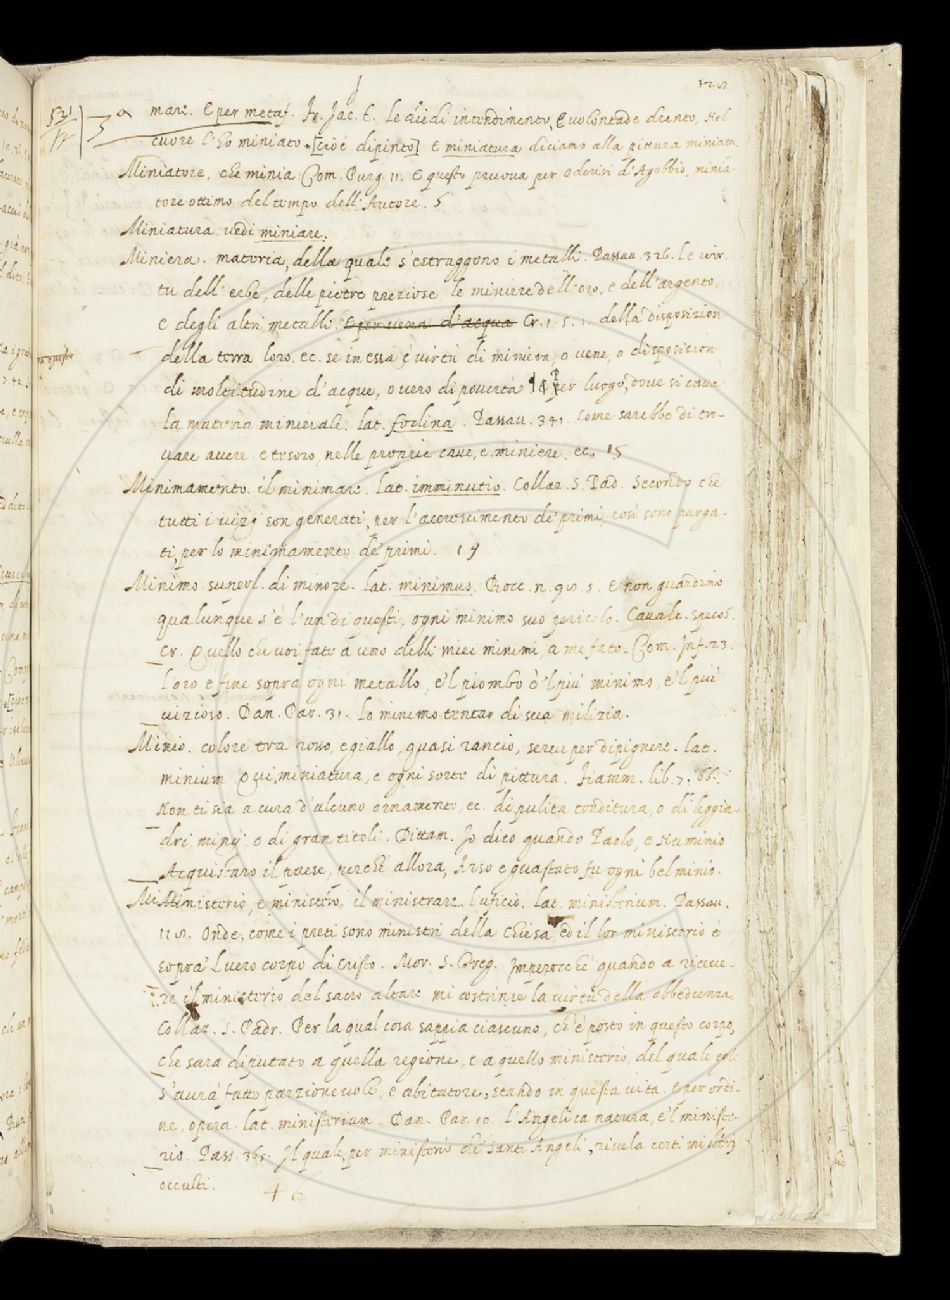 mare. E per metaf. Fr. Jac. T. Le diè di intendimento, E volontade drento, Nel
cuore l'ho miniato [cioè dipinto] E miniatura diciamo alla pittura miniata
Miniatore, che minia. Com. Purg. 11. E questo pruova per Oderisi d'Agobbio, minia-
tore ottimo del tempo dell'Autore. 5
Miniatura. vedi miniare.
Miniera. materia, della quale s'estraggono i metalli. Passav. 326. le vir-
tu dell'erbe, delle pietre preziose le miniere dell'oro, e dell'argento,
e degli altri metalli. E per vena d'acqua Cr. 1. 5. 1. della disposizion
della terra loro. ec. se in essa è virtù di miniera, o vene, o disposizion
di moltitudine d'acque, o vero di povertà per luogo, dove si cava
la materia minerale. lat. fodina. Passav. 341. come sarebbe di tro-
vare avere e tesoro, nelle proprie cave, e miniere, ec. 15
Minimamento. il minimare. lat. imminutio. Collaz. S. Pad. Secondo che
tutti i vizj son generati, per l'accrescimento de' primi, così sono purga-
ti, per lo minimamento de' primi. 19
Minimo. superl. di minore. lat. minimus. Bocc. n. 98. 5. E non guardino
qualunque s'è l'un di questi, ogni minimo suo pericolo. Cavalc. specch.
Cr. Quello che voi fate a uno delli miei minimi, a me fate. Com. Inf. 23.
L'oro è fine sopra ogni metallo, e'l piombo è'l più minimo, e'l più
vizioso. Dan. Par. 31. Lo minimo tentar di sua milizia.
Minio. colore tra rosso, e giallo, quasi rancio, serve per dipignere. lat.
minium Qui, miniatura, e ogni sorte di pittura. Fiamm. lib. 7. 86.
Non ti sia a cura d'alcuno ornamento, ec. di pulita conditura, o di leggia-
dri minij, o di gran titoli. Dittam. Io dico quando Paolo, e Numinio
Acquistaro il paese, perchè allora, Arso e guastato fu ogni bel minio.
Ministerio, e ministero. il ministrare. l'uficio. lat. ministerium. Passav.
118. Onde, come i preti sono ministri della Chiesa ed il lor ministerio è
sopra'l vero corpo di Cristo. Mor. S. Greg. Imperocchè quando a riceve-
re il ministerio del sacro altare mi costrinse la virtù della obbedienza
Collaz. S. Padr. Per la qual cosa sappia ciascuno, ch'è posto in questo corpo,
che sarà diputato a quella regione, e a quello ministerio, del quale egli
s'avrà fatto parzionevole, e abitatore, stando in questa vita. E per ordi-
ne, opera. lat. ministerium. Dan. Par. 10. L'Angelica natura, e'l ministe-
rio. Pass. 365. Il quale, per ministerio de' Santi Angeli, rivela certi misterj
occulti. 46